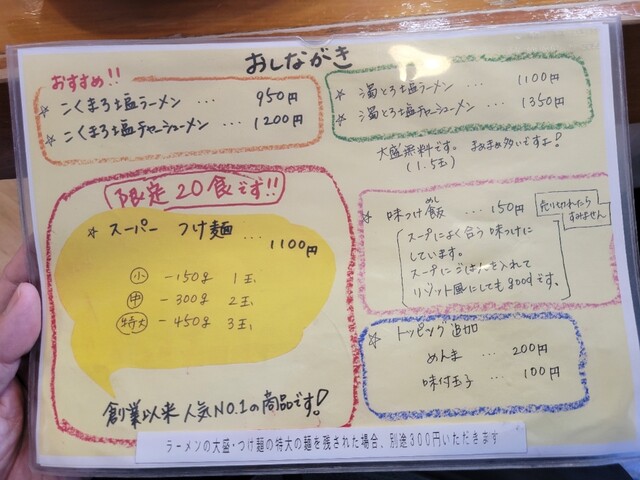 おしながき
おすすめ!!
☆ こくまろ塩ラーメン ... 950円
☆ こくまろ塩チャーシューメン ... 1200円
☆ 濁とろ塩ラーメン ... 1100円
☆ 濁とろ塩チャーシューメン ... 1350円
大盛無料です。まぁまぁ多いですよ!
(1.5玉)
限定20食です!!
☆ スーパー つけ麺 ... 1100円
小 -150g 1玉
中 -300g 2玉
特大 -450g 3玉
創業以来人気NO.1の商品です!
☆ 味つけ飯 ... 150円
めし
売り切れたら
すみません
スープによく合う味つけに
しています。
スープにごはんを入れて
リゾット風にしてもgoodです。
☆ トッピング追加
めんま ... 200円
味付玉子 ... 100円
ラーメンの大盛・つけ麺の特大の麺を残された場合、別途300円いただきます